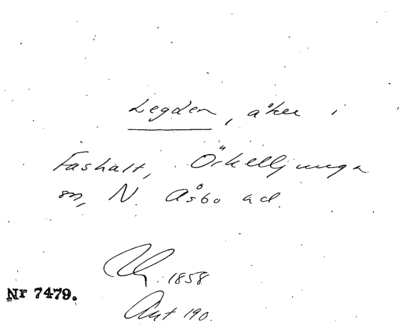 Legden, åker i
Fashalt, Örkelljunga
sn, N. Åsbo hd.
1858
Nr 7479.
Ant 190.